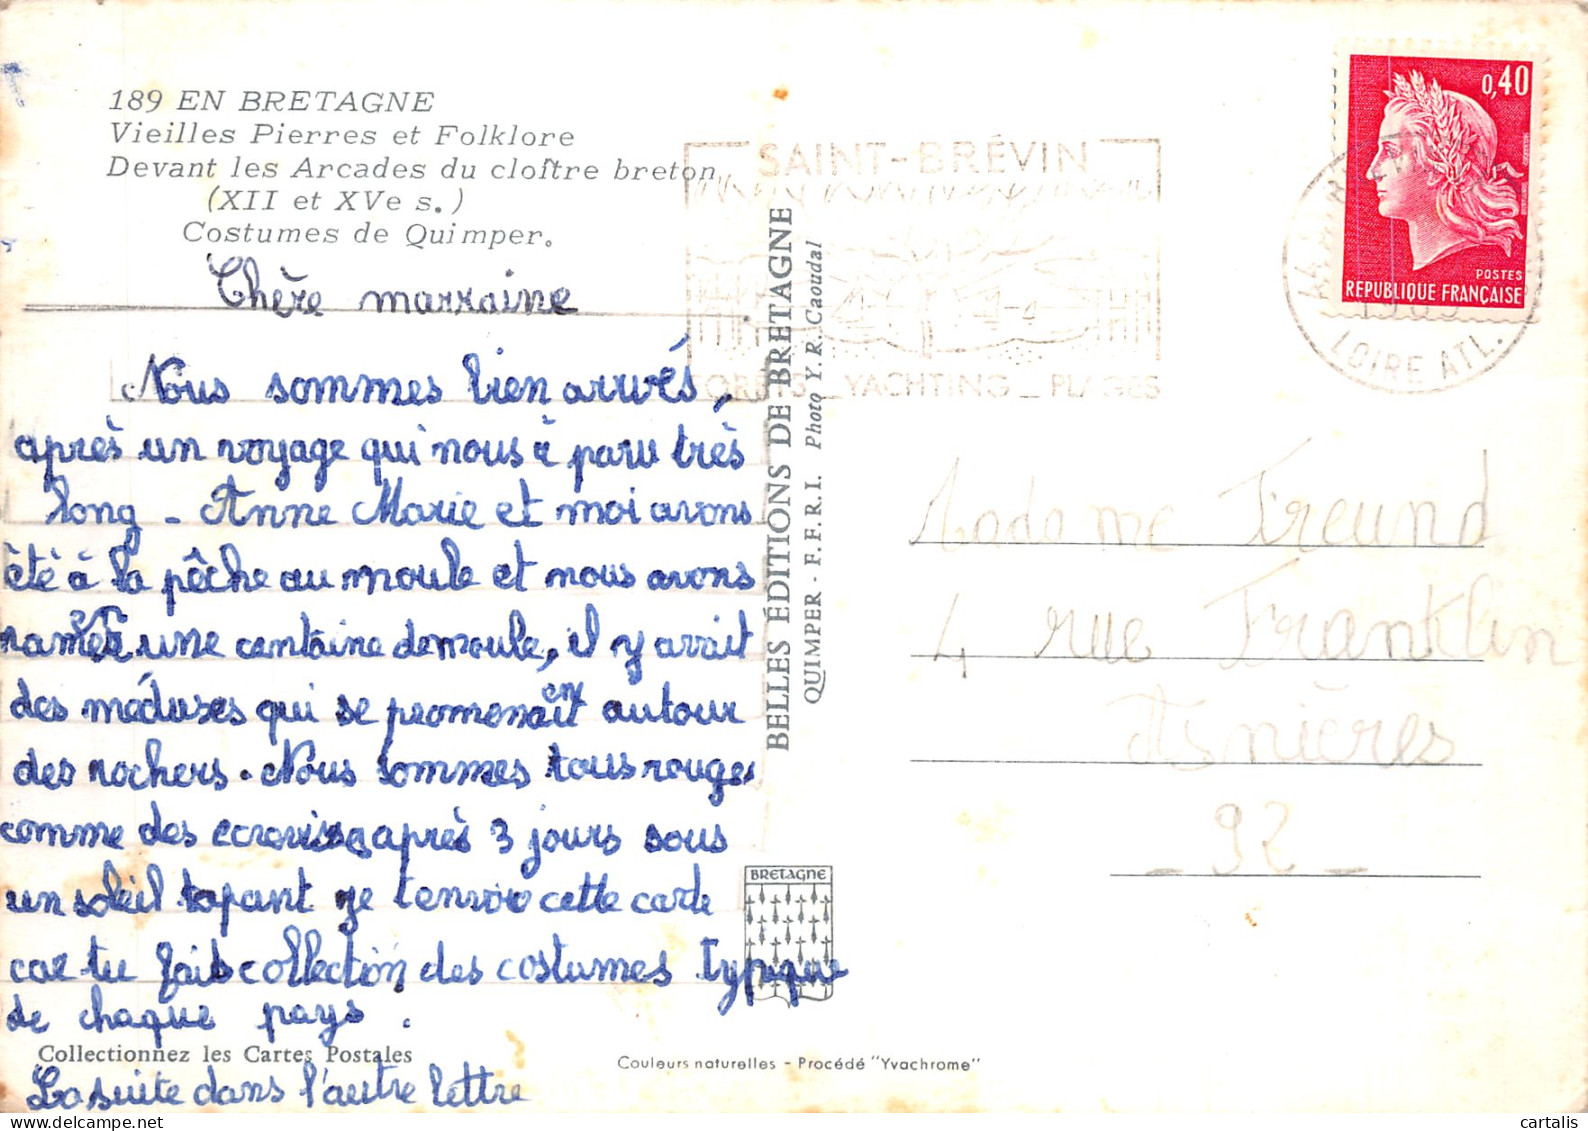 189 EN BRETAGNE
Vieilles Pierres et Folklore
Devant les Arcades du cloître breton
(XII et XVe s.)
Costumes de Quimper.
Chère marraine
Nous sommes bien arrivés,
après un voyage qui nous à paru très
long - Anne Marie et moi avons
été à la pêche au moule et nous avons
une centaine de moule, il y avait
des méduses qui se promenaient autour
des rochers. Nous sommes tous rouges
comme des écrevisses après 3 jours sous
un soleil tapant je t'envoie cette carte
car tu fais collection des costumes typique
de chaque pays.
Collectionnez les Cartes Postales
La suite dans l'autre lettre
BELLES ÉDITIONS DE BRETAGNE
QUIMPER - F.F.R.I. Photo Y.R. Caoudal
BRETAGNE
Couleurs naturelles - Procédé "Yvachrome"
SAINT-BRÉVIN
FORÊTS _ YACHTING _ PLAGES
0,40
POSTES
RÉPUBLIQUE FRANÇAISE
LOIRE ATL.
Madame Freund
4 rue Franklin
Asnières
_ 92 _
cartalis